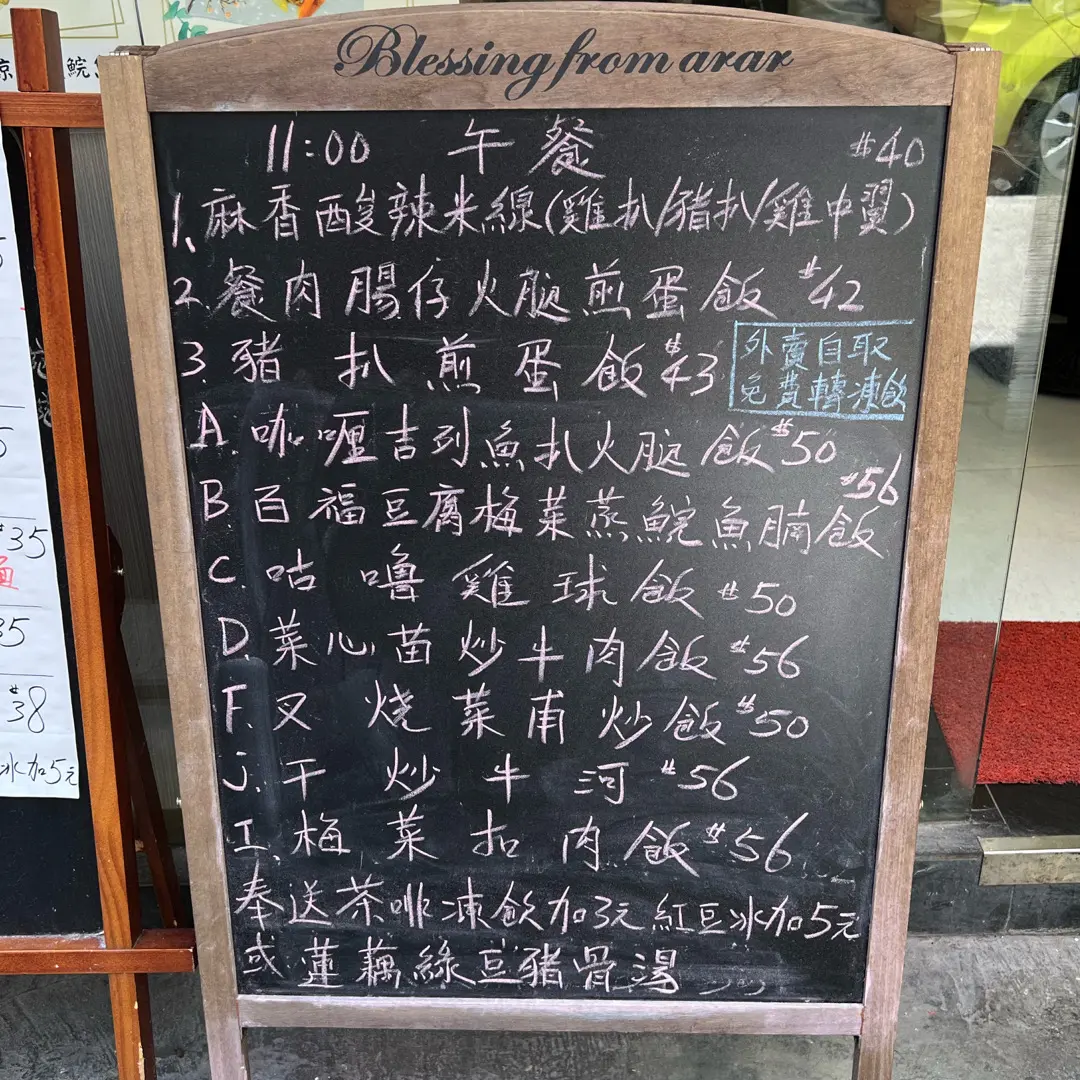 鯇
Blessing from arar
11:00 午餐 $40
1、麻香酸辣米線(雞扒/豬扒/雞中翼)
2.餐肉腸仔火腿煎蛋飯 $42
3.豬扒煎蛋飯 $43
外賣自取
免費轉凍飲
A.咖喱吉列魚扒火腿飯 $50
B.百福豆腐梅菜蒸鯇魚腩飯 $56
C.咕嚕雞球飯 $50
D.菜心苗炒牛肉飯 $56
F.叉烧菜甫炒飯 $50
J.干炒牛河 $56
I.梅菜扣肉飯 $56
奉送茶啡凍飲加3元 紅豆冰加5元
或蓮藕綠豆豬骨湯
5
5
$35
35
$38
冰加5元